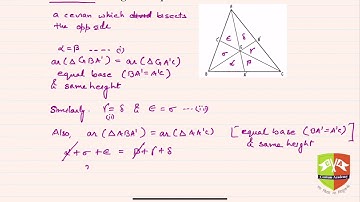 a cevian which bisects
the opp side
α = β ---- (i)
ar (Δ GBA') = ar (Δ GA'C)
equal base (BA' = A'C)
& same height
Similarly γ = δ & ϵ = σ --- (ii)
(ii)
Also, ar (Δ ABA') = ar (Δ AA'C) [equal base (BA' = A'C)
& same height
α + σ + ϵ = β + γ + δ
A
ϵ δ
σ γ
α β
B A' C